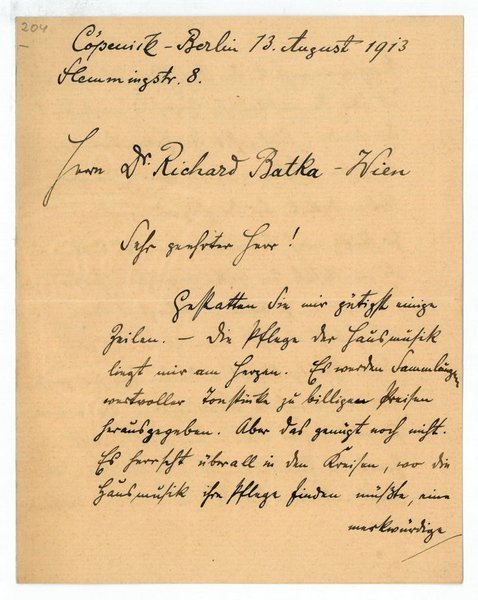 204
Cöpenick - Berlin 13. August 1913
Flemmingstr. 8.
Herrn Dr. Richard Batka - Wien
Sehr geehrter Herr!
Gestatten Sie mir gütigst einige
Zeilen. - Die Pflege der Hausmusik
liegt mir am Herzen. Es werden Sammlungen
wertvoller Tonstücke zu billigen Preisen
herausgegeben. Aber das genügt noch nicht.
Es herrscht überall in den Kreisen, wo die
Hausmusik ihre Pflege finden müßte, eine
merkwürdige